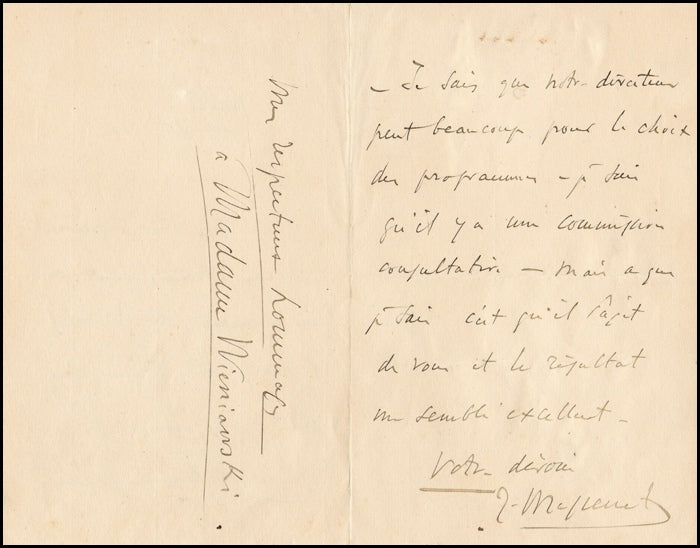 – Je sais que notre directeur
peut beaucoup pour le choix
des programmes – je sais
qu'il y a une commission
consultative – mais ce que
je sais c'est qu'il s'agit
de vous et le résultat
me semble excellent –
Votre dévoué
J. Massenet
Mes respectueux hommages
à Madame Wieniawski.